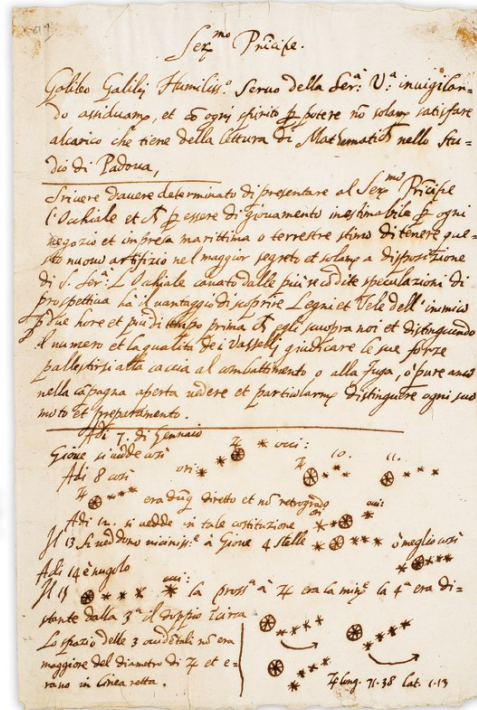 Ser.mo Pricipe.
Galileo Galilei Humiliss.o Servo della Ser.a V.a invigilan-
do assiduam.e, et cō ogni spirito p potere nō solam satisfare
alcarico che tiene della lettura di Mathematic.h nello Stu-
dio di Padova,
Scrivere davere determinato di presentare al Ser.mo Pricipe
l'Occhiale et p essere di giovamento inestimabile p ogni
negozio et impresa marittima o terrestre stimo di tenere que-
sto nuovo artifizio nel maggior segreto et solam a disposizione
di S. Ser.a L'Occhiale cavato dalle più recōdite speculazioni di
prospettiva hà il vantaggio di scoprire Legni et Vele dell'inimico
p due hore et più di tempo prima egli scuopra noi et distinguendo
il numero et la qualità dei Vasselli giudicare le sue forze
pallestirsi alla caccia al combattimento o alla fuga, o pure anco
nella cāpagna aperta vedere et particularm.e distinguere ogni suo
moto et preparamento.
Adi 7. di Gennaio
Gioue si uedde così ♃ occi:
Adi 8 così ori 10. 11.
♃ era dūq diretto et nō retrogrado
Adi 12. si uedde in tale costituzione ori occi:
Il 13 si ueddono uiciniss.e à Gioue 4 stelle ò meglio così
Adi 14 è nugolo
Il 15 occi: la pross.a à ♃ era la min.e la 4.a era di-
stante dalla 3.a il doppio Īcirca
Lo spazio delle 3 occidētali nō era
maggiore del diametro di ♃ et e-
rano in linea retta.
♃ long. 71.38 lat. 1.13